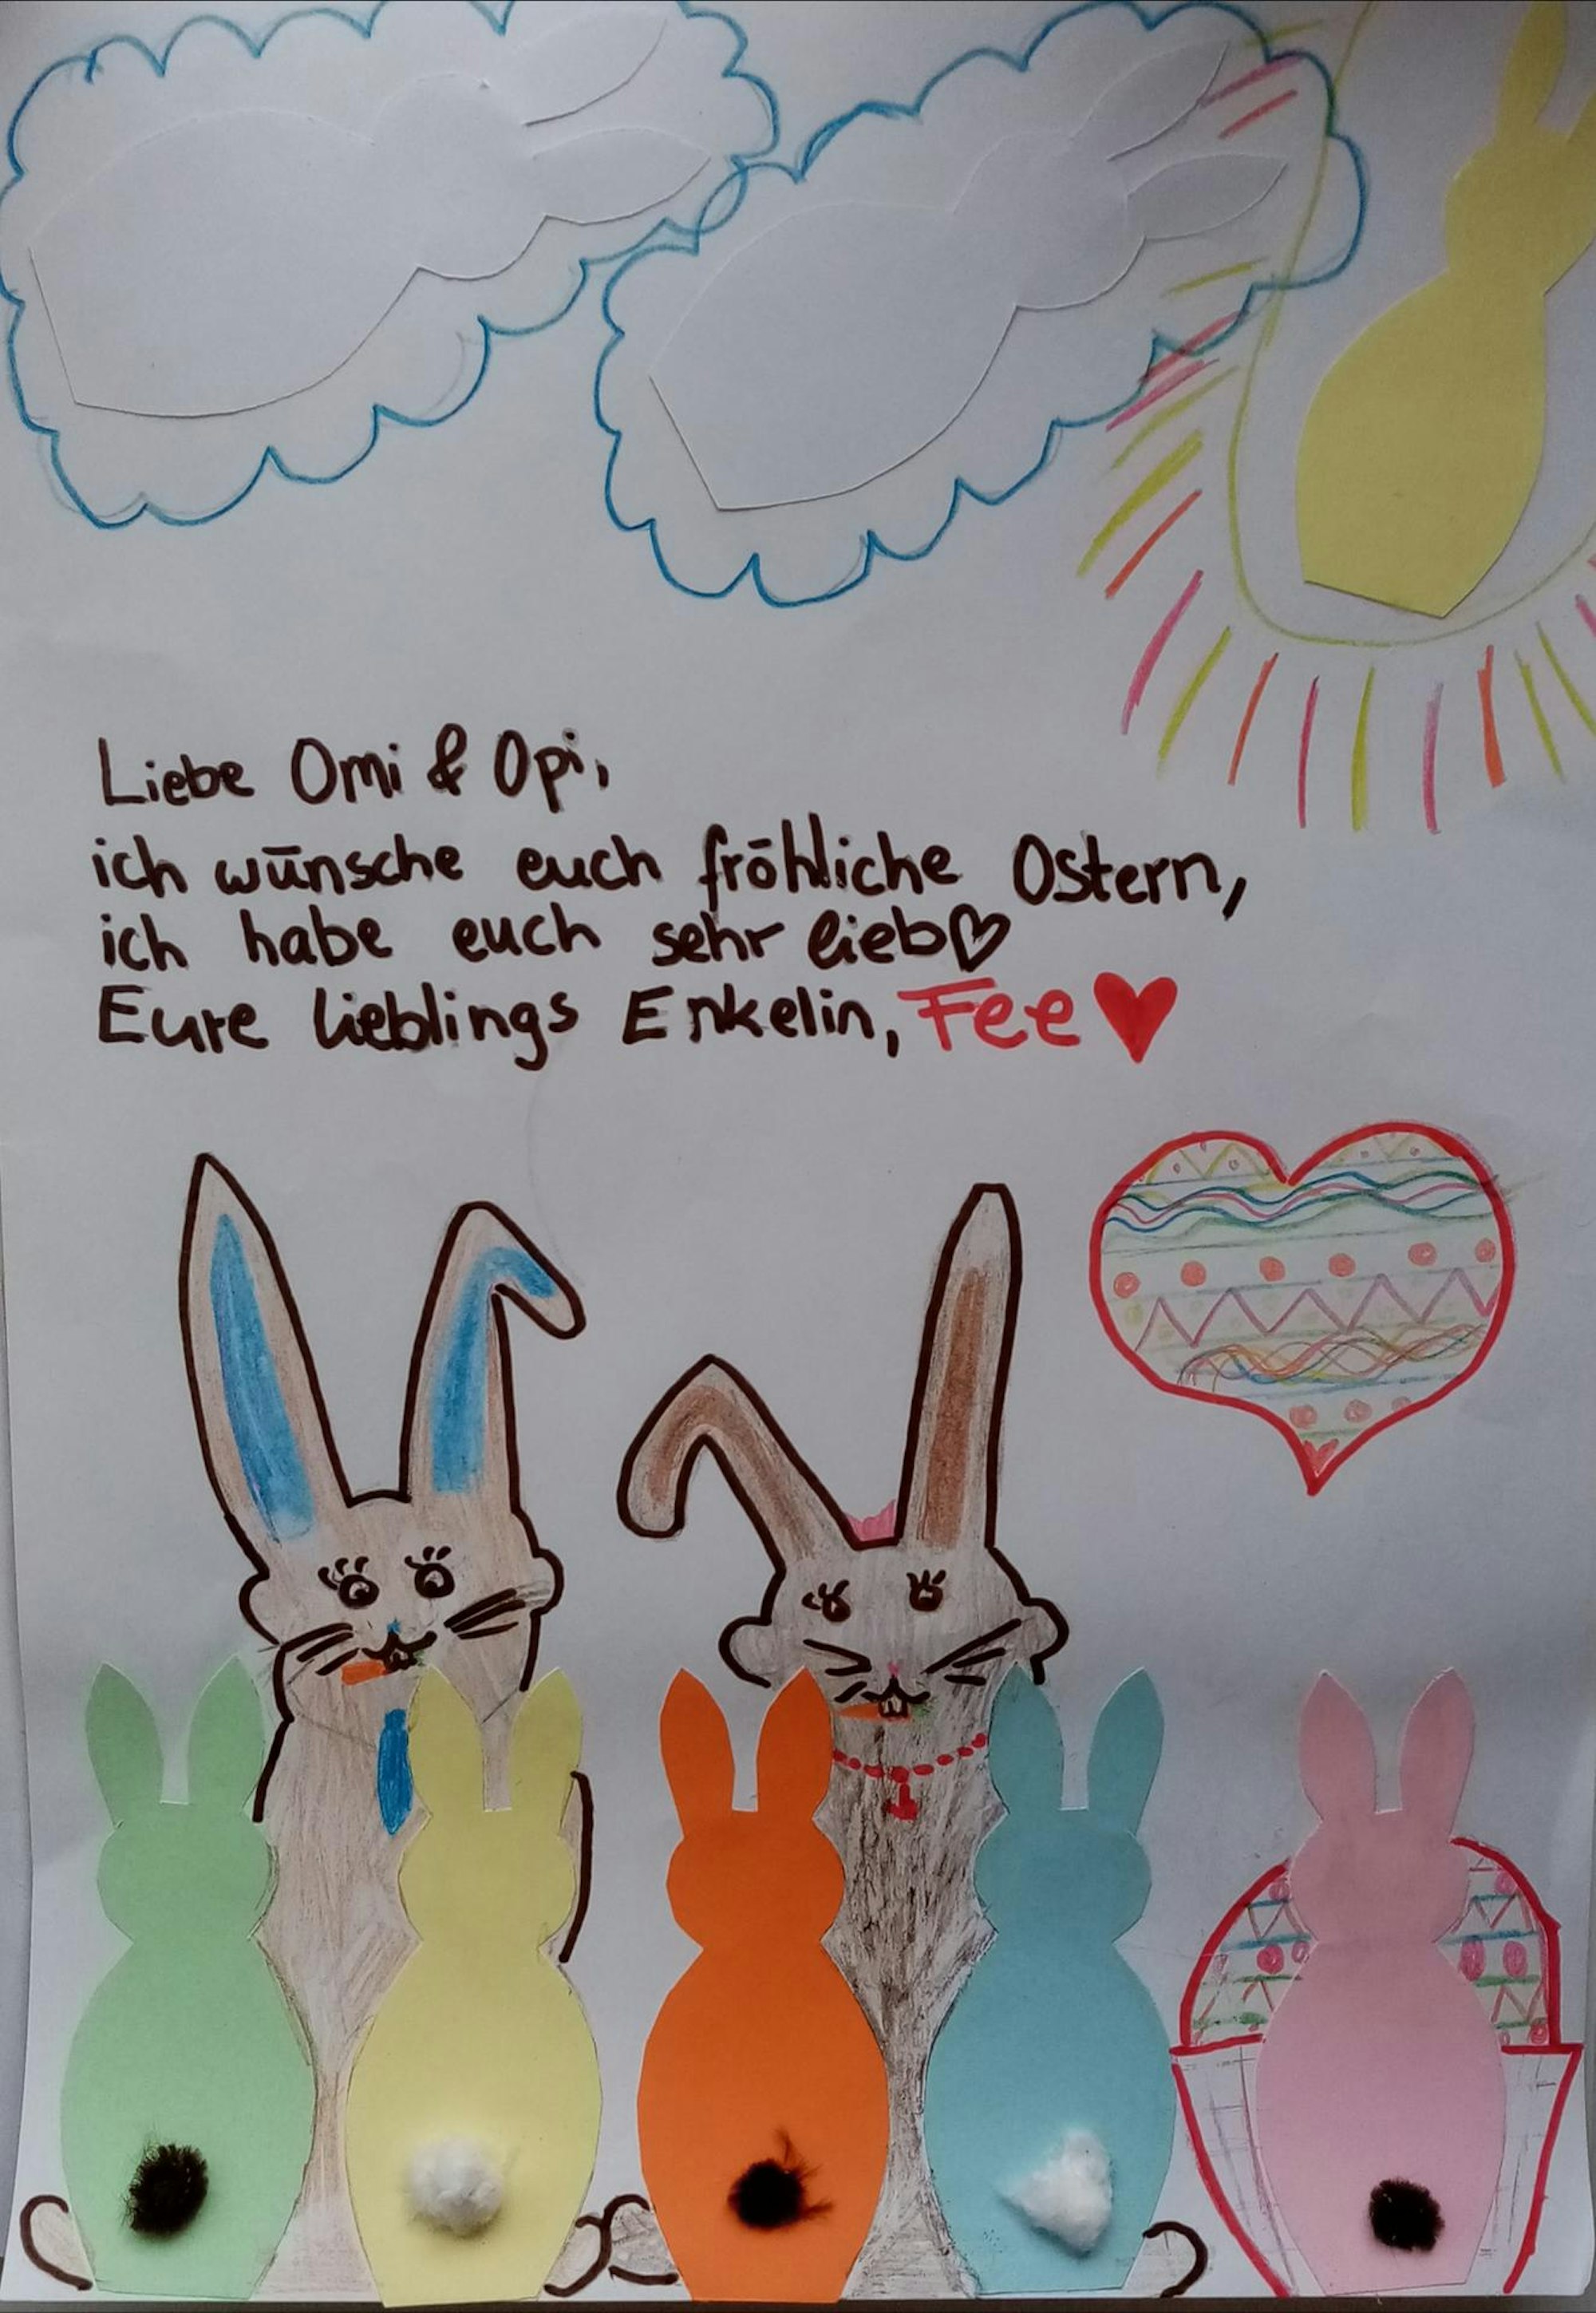 Liebe Omi & Opi,
ich wünsche euch fröhliche Ostern,
ich habe euch sehr lieb♡
Eure lieblings Enkelin, Fee♥